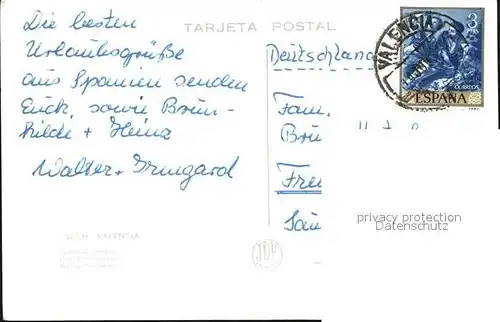 TARJETA POSTAL
Die besten
Urlaubsgrüße
aus Spanien senden
Euch, sowie Brun-
hilde + Heinz
Walter + Irmgard
Deutschland
Fam.
Brü
Frei
Sau
VALENCIA
3
CORREOS
ESPAÑA
privacy protection
Datenschutz
VALENCIA